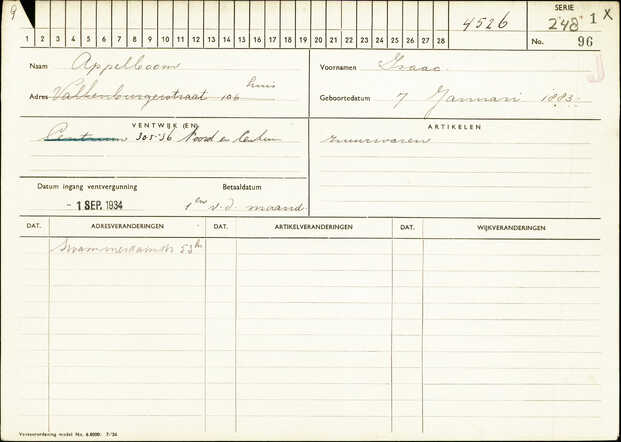 9
4526
SERIE
248 1 X
1 2 3 4 5 6 7 8 9 10 11 12 13 14 15 16 17 18 19 20 21 22 23 24 25 26 27 28
No. 96
Naam Appelboom
Voornamen Isaac.
J
Adres Valkenburgerstraat 106 huis
Geboortedatum 7 Januari 1883
VENTWIJK (EN)
ARTIKELEN
Centrum 30-5-'36 Noord en Centrum
zuurwaren
Datum ingang ventvergunning
Betaaldatum
- 1 SEP. 1934
1en v.d. maand
DAT. ADRESVERANDERINGEN DAT. ARTIKELVERANDERINGEN DAT. WIJKVERANDERINGEN
Swammerdamstr 53 hs
Ventverordening model No. 6.8000: 7-'36